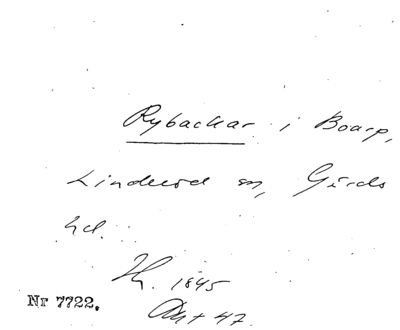 Rybackar i Boarp,
Linderöd sn, Gärds
hd.
1845
Nr 7722.
47.